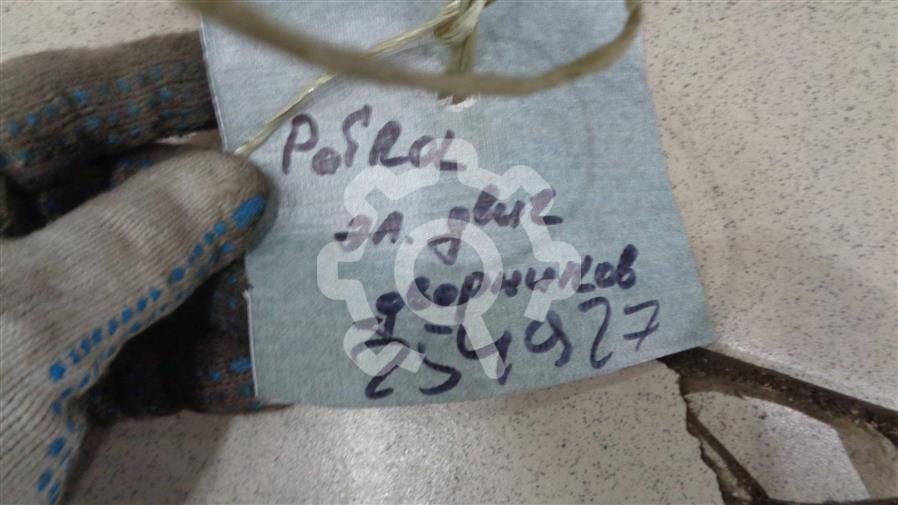 эл. двиг
дворников
254927